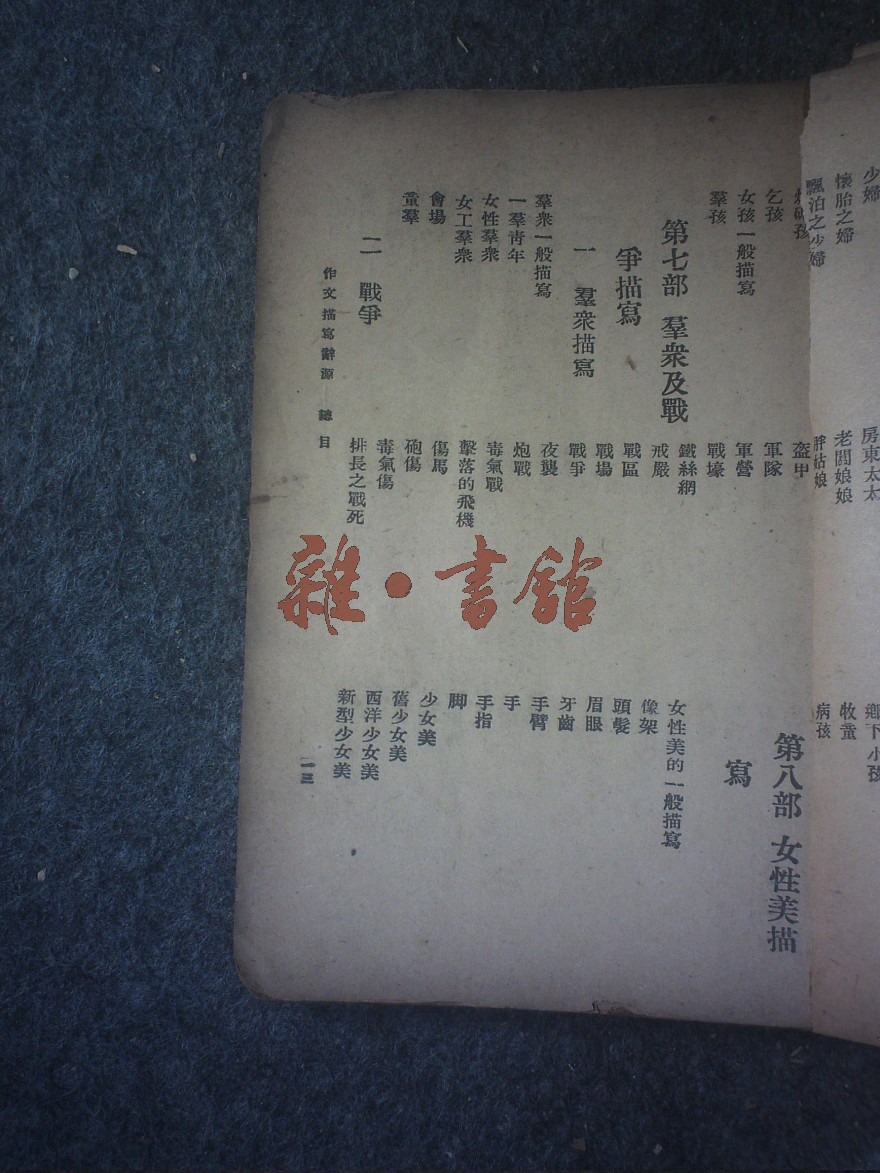 少婦
懷胎之婦
飄泊之少婦
房東太太
老闆娘娘
胖姑娘
鄉下小孩
牧童
病孩
乞孩
女孩一般描寫
羣孩
第七部 羣衆及戰
爭描寫
一 羣衆描寫
羣衆一般描寫
一羣青年
女性羣衆
女工羣衆
會場
童羣
二 戰爭
盔甲
軍隊
軍營
戰壕
鐵絲網
戒嚴
戰區
戰場
戰爭
夜襲
炮戰
毒氣戰
擊落的飛機
傷馬
砲傷
毒氣傷
排長之戰死
第八部 女性美描
寫
女性美的一般描寫
像架
頭髮
眉眼
牙齒
手臂
手
手指
脚
少女美
舊少女美
西洋少女美
新型少女美
作文描寫辭源 總目
一三
雜·書館